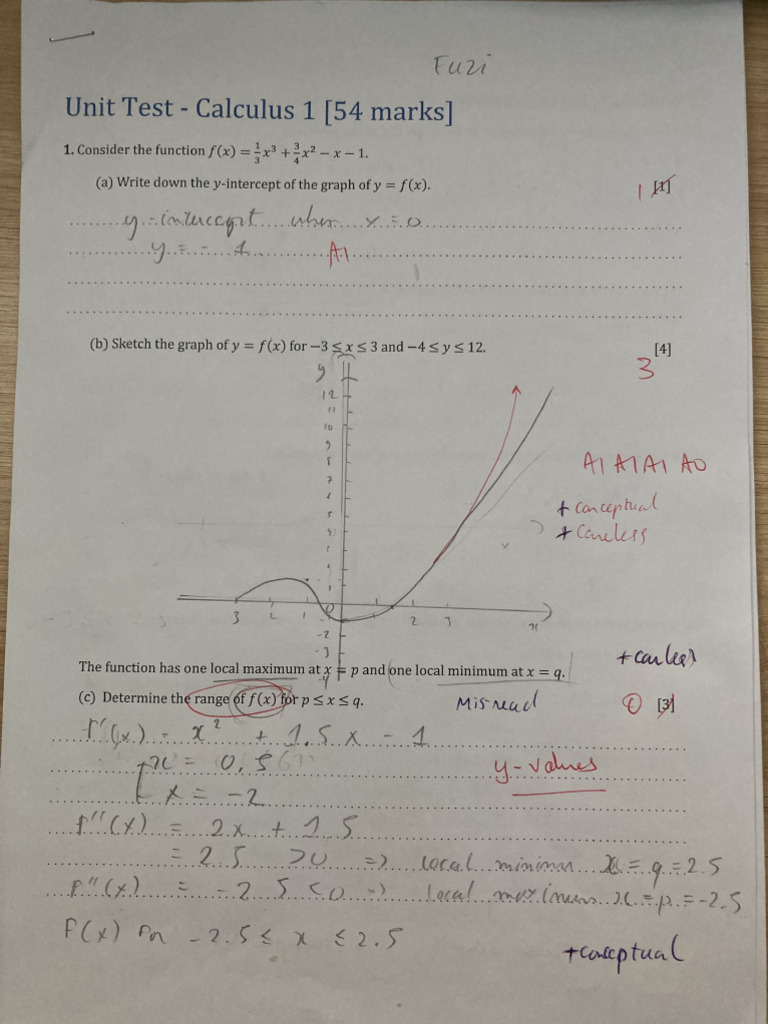 Fuzi
Unit Test - Calculus 1 [54 marks]
1. Consider the function f(x) = 1/3 x³ + 3/4 x² − x − 1.
(a) Write down the y-intercept of the graph of y = f(x).
1 [1]
y-intercept when x = 0
y = - 1 A1
(b) Sketch the graph of y = f(x) for −3 ≤ x ≤ 3 and −4 ≤ y ≤ 12.
[4]
3
y
12
11
10
9
8
7
6
5
A1 A1 A1 A0
+ conceptual
+ careless
3 2 1 0 1 2 3 x
-2
-3
-4
The function has one local maximum at x = p and one local minimum at x = q.
+ careless
(c) Determine the range of f(x) for p ≤ x ≤ q.
Misread
0 [3]
f'(x) = x² + 1.5x − 1
x = 0.5
y-values
x = −2
f''(x) = 2x + 1.5
= 2.5 >0 => local minimum x = q = 2.5
f''(x) = -2.5 <0 => local maximum x = p = -2.5
f(x) for -2.5 ≤ x ≤ 2.5
+conceptual